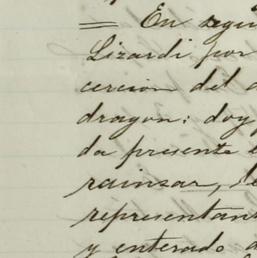 = En segui
Lizardi por
cercion del
dragon: doy
da presente
rainzar, de
representan
y enterado